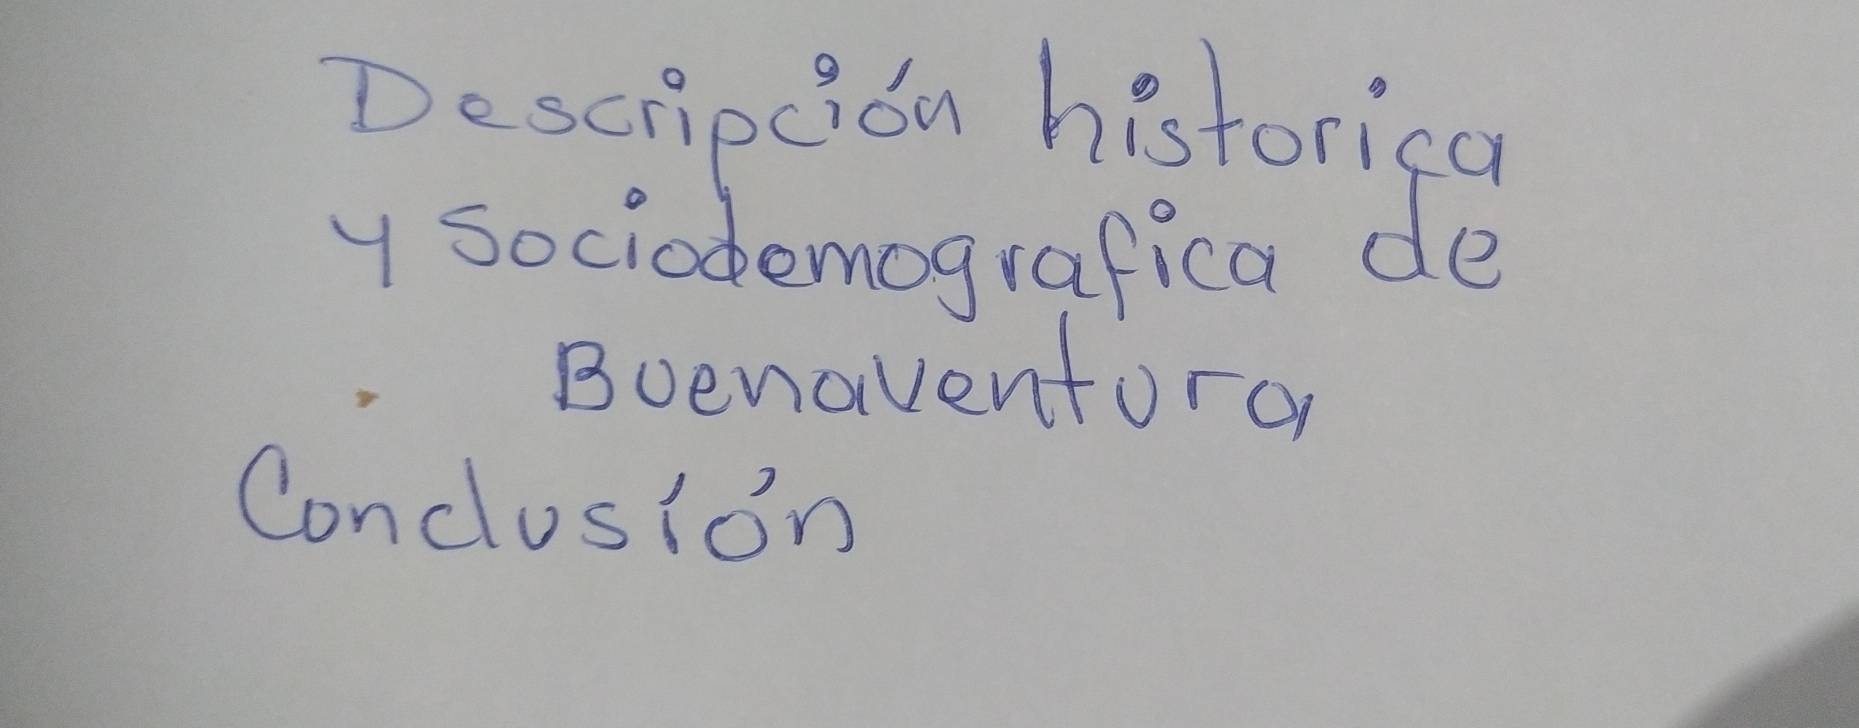 Descripción historica
y Sociodemografica de
Buenaventura
Conclusión